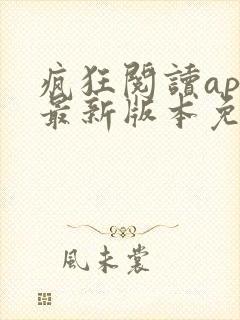 疯狂閱讀ap
最新版本免
風未裳